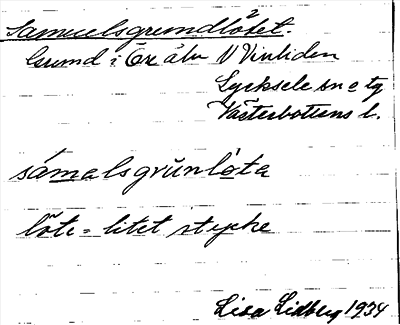 Samuelsgrundlötet.
Grund i Öreälv V Vinliden
Lycksele sn o tg
Västerbottens l.
sámalsgrŭnlöta
löte = litet stycke
Lisa Lidberg 1934